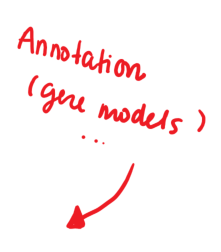 Annotation
(gene models)
...